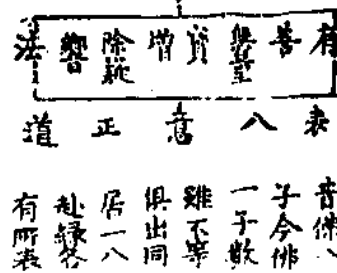 有 善 無量 寶 增 除疑 響 法
表 八 意 正 道
昔八
子今佛
一子數
雖不等
俱出同
居一八
赴緣各
有所表